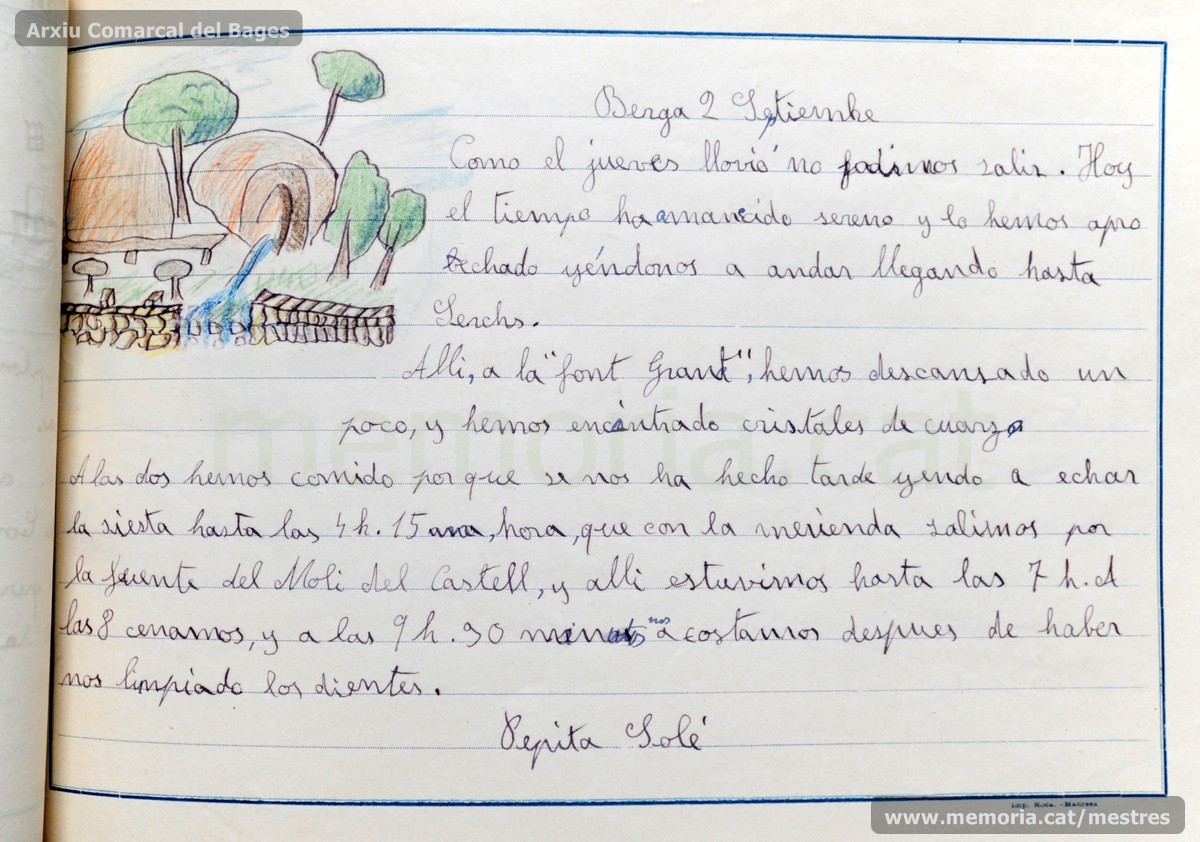 Arxiu Comarcal del Bages
Berga 2 Septiembre
Como el jueves llovió no pudimos salir. Hoy
el tiempo ha amanecido sereno y lo hemos apro
bechado yéndonos a andar llegando hasta
Serchs.
Alli, a la "font Grant", hemos descansado un
poco, y hemos encontrado cristales de cuarzo
A las dos hemos comido porque se nos ha hecho tarde yendo a echar
la siesta hasta las 4 h. 15, hora, que con la merienda salimos por
la fuente del Moli del Castell, y alli estuvimos hasta las 7 h. A
las 8 cenamos, y a las 9 h. 30 minuts nos acostamos despues de haber
nos limpiado los dientes.
Pepita Solé
memoria.cat
Imp. Roca. - Manresa
www.memoria.cat/mestres